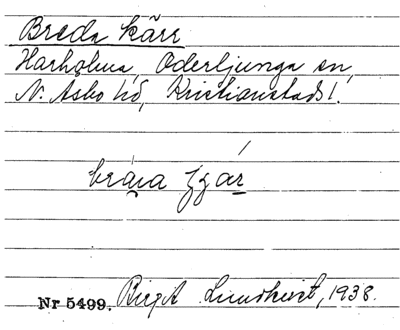 Breda kärr
Harholma, Oderljunga sn,
N. Åsbo hd, Kristianstads l.
Nr 5499. Birgit Lundkvist, 1938.